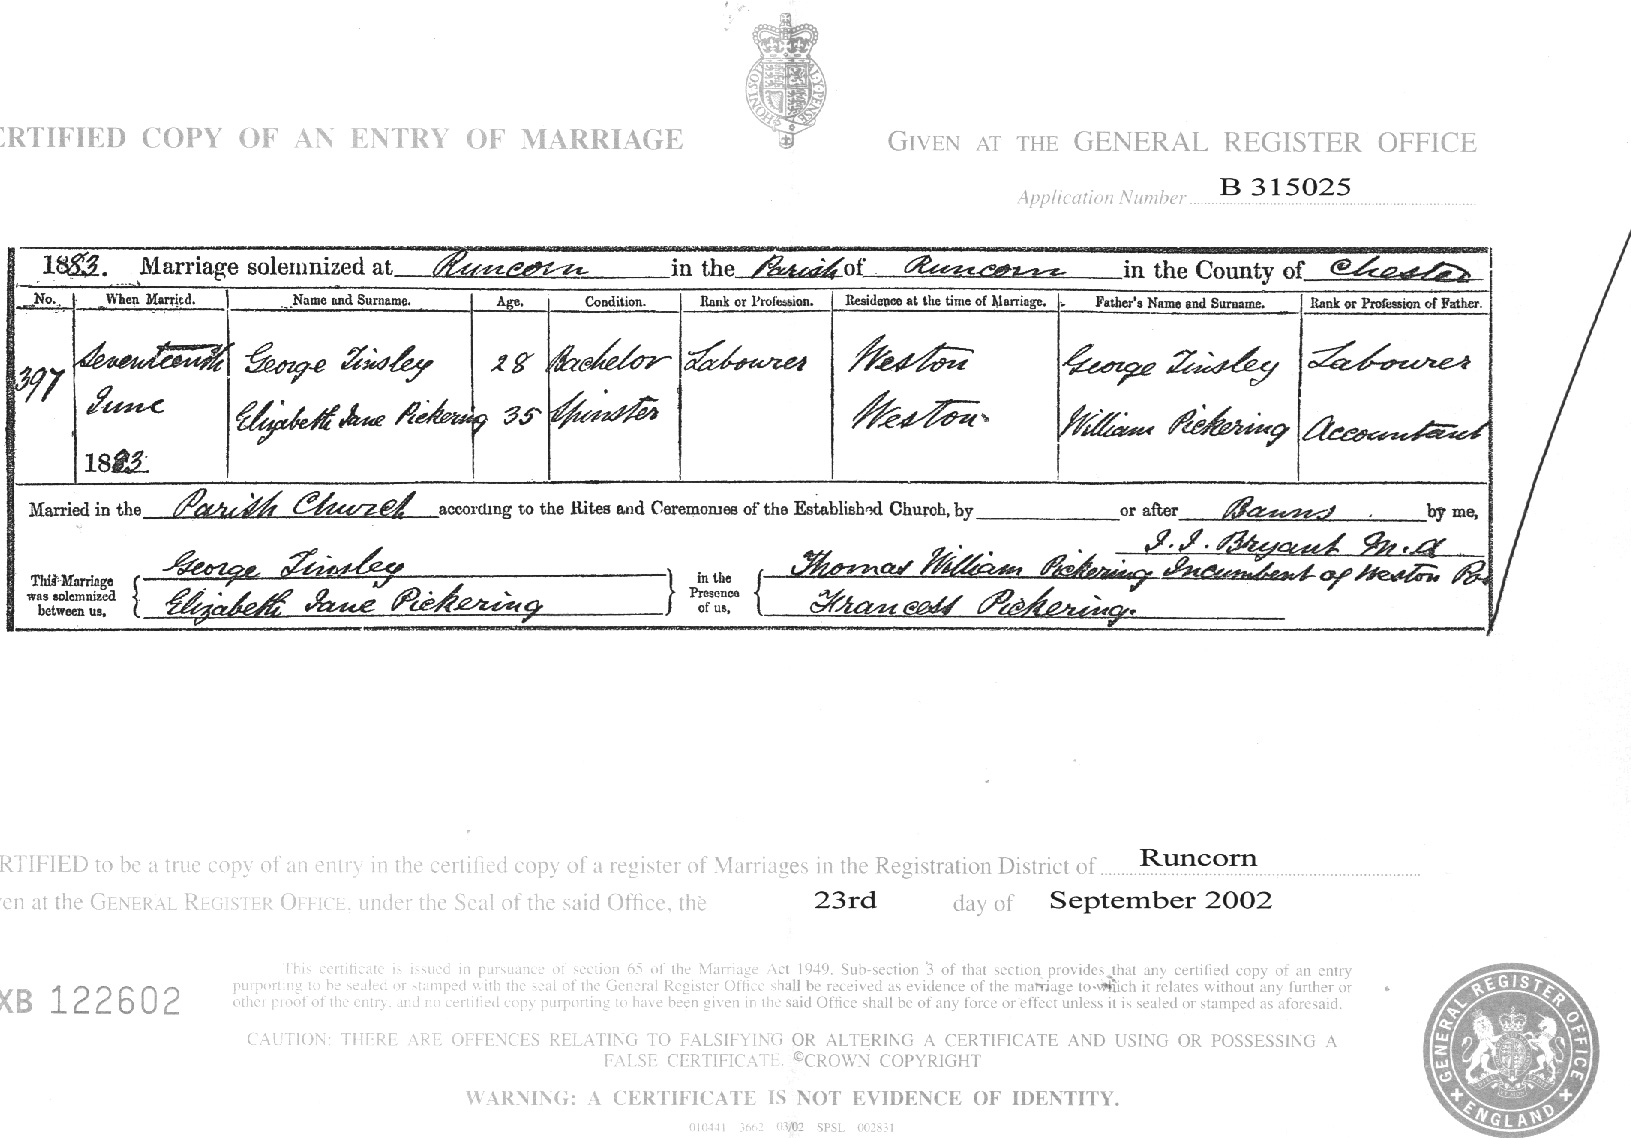 HONI SOI
AL Y PENSE
ERTIFIED COPY OF AN ENTRY OF MARRIAGE
GIVEN AT THE GENERAL REGISTER OFFICE
Application Number B 315025
1883. Marriage solemnized at Runcorn in the Parish of Runcorn in the County of Chester
No. When Married. Name and Surname. Age. Condition. Rank or Profession. Residence at the time of Marriage. Father's Name and Surname. Rank or Profession of Father.
397 Seventeenth George Tinsley 28 Bachelor Labourer Weston George Tinsley Labourer
June Elizabeth Jane Pickering 35 Spinster Weston William Pickering Accountant
1883
Married in the Parish Church according to the Rites and Ceremonies of the Established Church, by or after Banns by me,
J. J. Bryant M.A
This Marriage was solemnized between us, George Tinsley in the Presence of us, Thomas William Pickering Incumbent of Weston
Elizabeth Jane Pickering Francess Pickering.
RTIFIED to be a true copy of an entry in the certified copy of a register of Marriages in the Registration District of Runcorn
en at the GENERAL REGISTER OFFICE, under the Seal of the said Office, the 23rd day of September 2002
XB 122602
This certificate is issued in pursuance of section 65 of the Marriage Act 1949. Sub-section 3 of that section provides that any certified copy of an entry
purporting to be sealed or stamped with the seal of the General Register Office shall be received as evidence of the marriage to which it relates without any further or
other proof of the entry, and no certified copy purporting to have been given in the said Office shall be of any force or effect unless it is sealed or stamped as aforesaid.
CAUTION: THERE ARE OFFENCES RELATING TO FALSIFYING OR ALTERING A CERTIFICATE AND USING OR POSSESSING A
FALSE CERTIFICATE. ©CROWN COPYRIGHT
WARNING: A CERTIFICATE IS NOT EVIDENCE OF IDENTITY.
010441 3662 03/02 SPSL 002831
GENERAL REGISTER OFFICE
ENGLAND